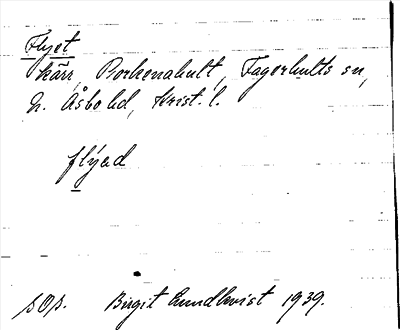 Flyet
kärr, Porkenahult, Fagerhults sn,
N. Åsbo hd, Krist. l.
flýed
sOp. Birgit Lundkvist 1939.